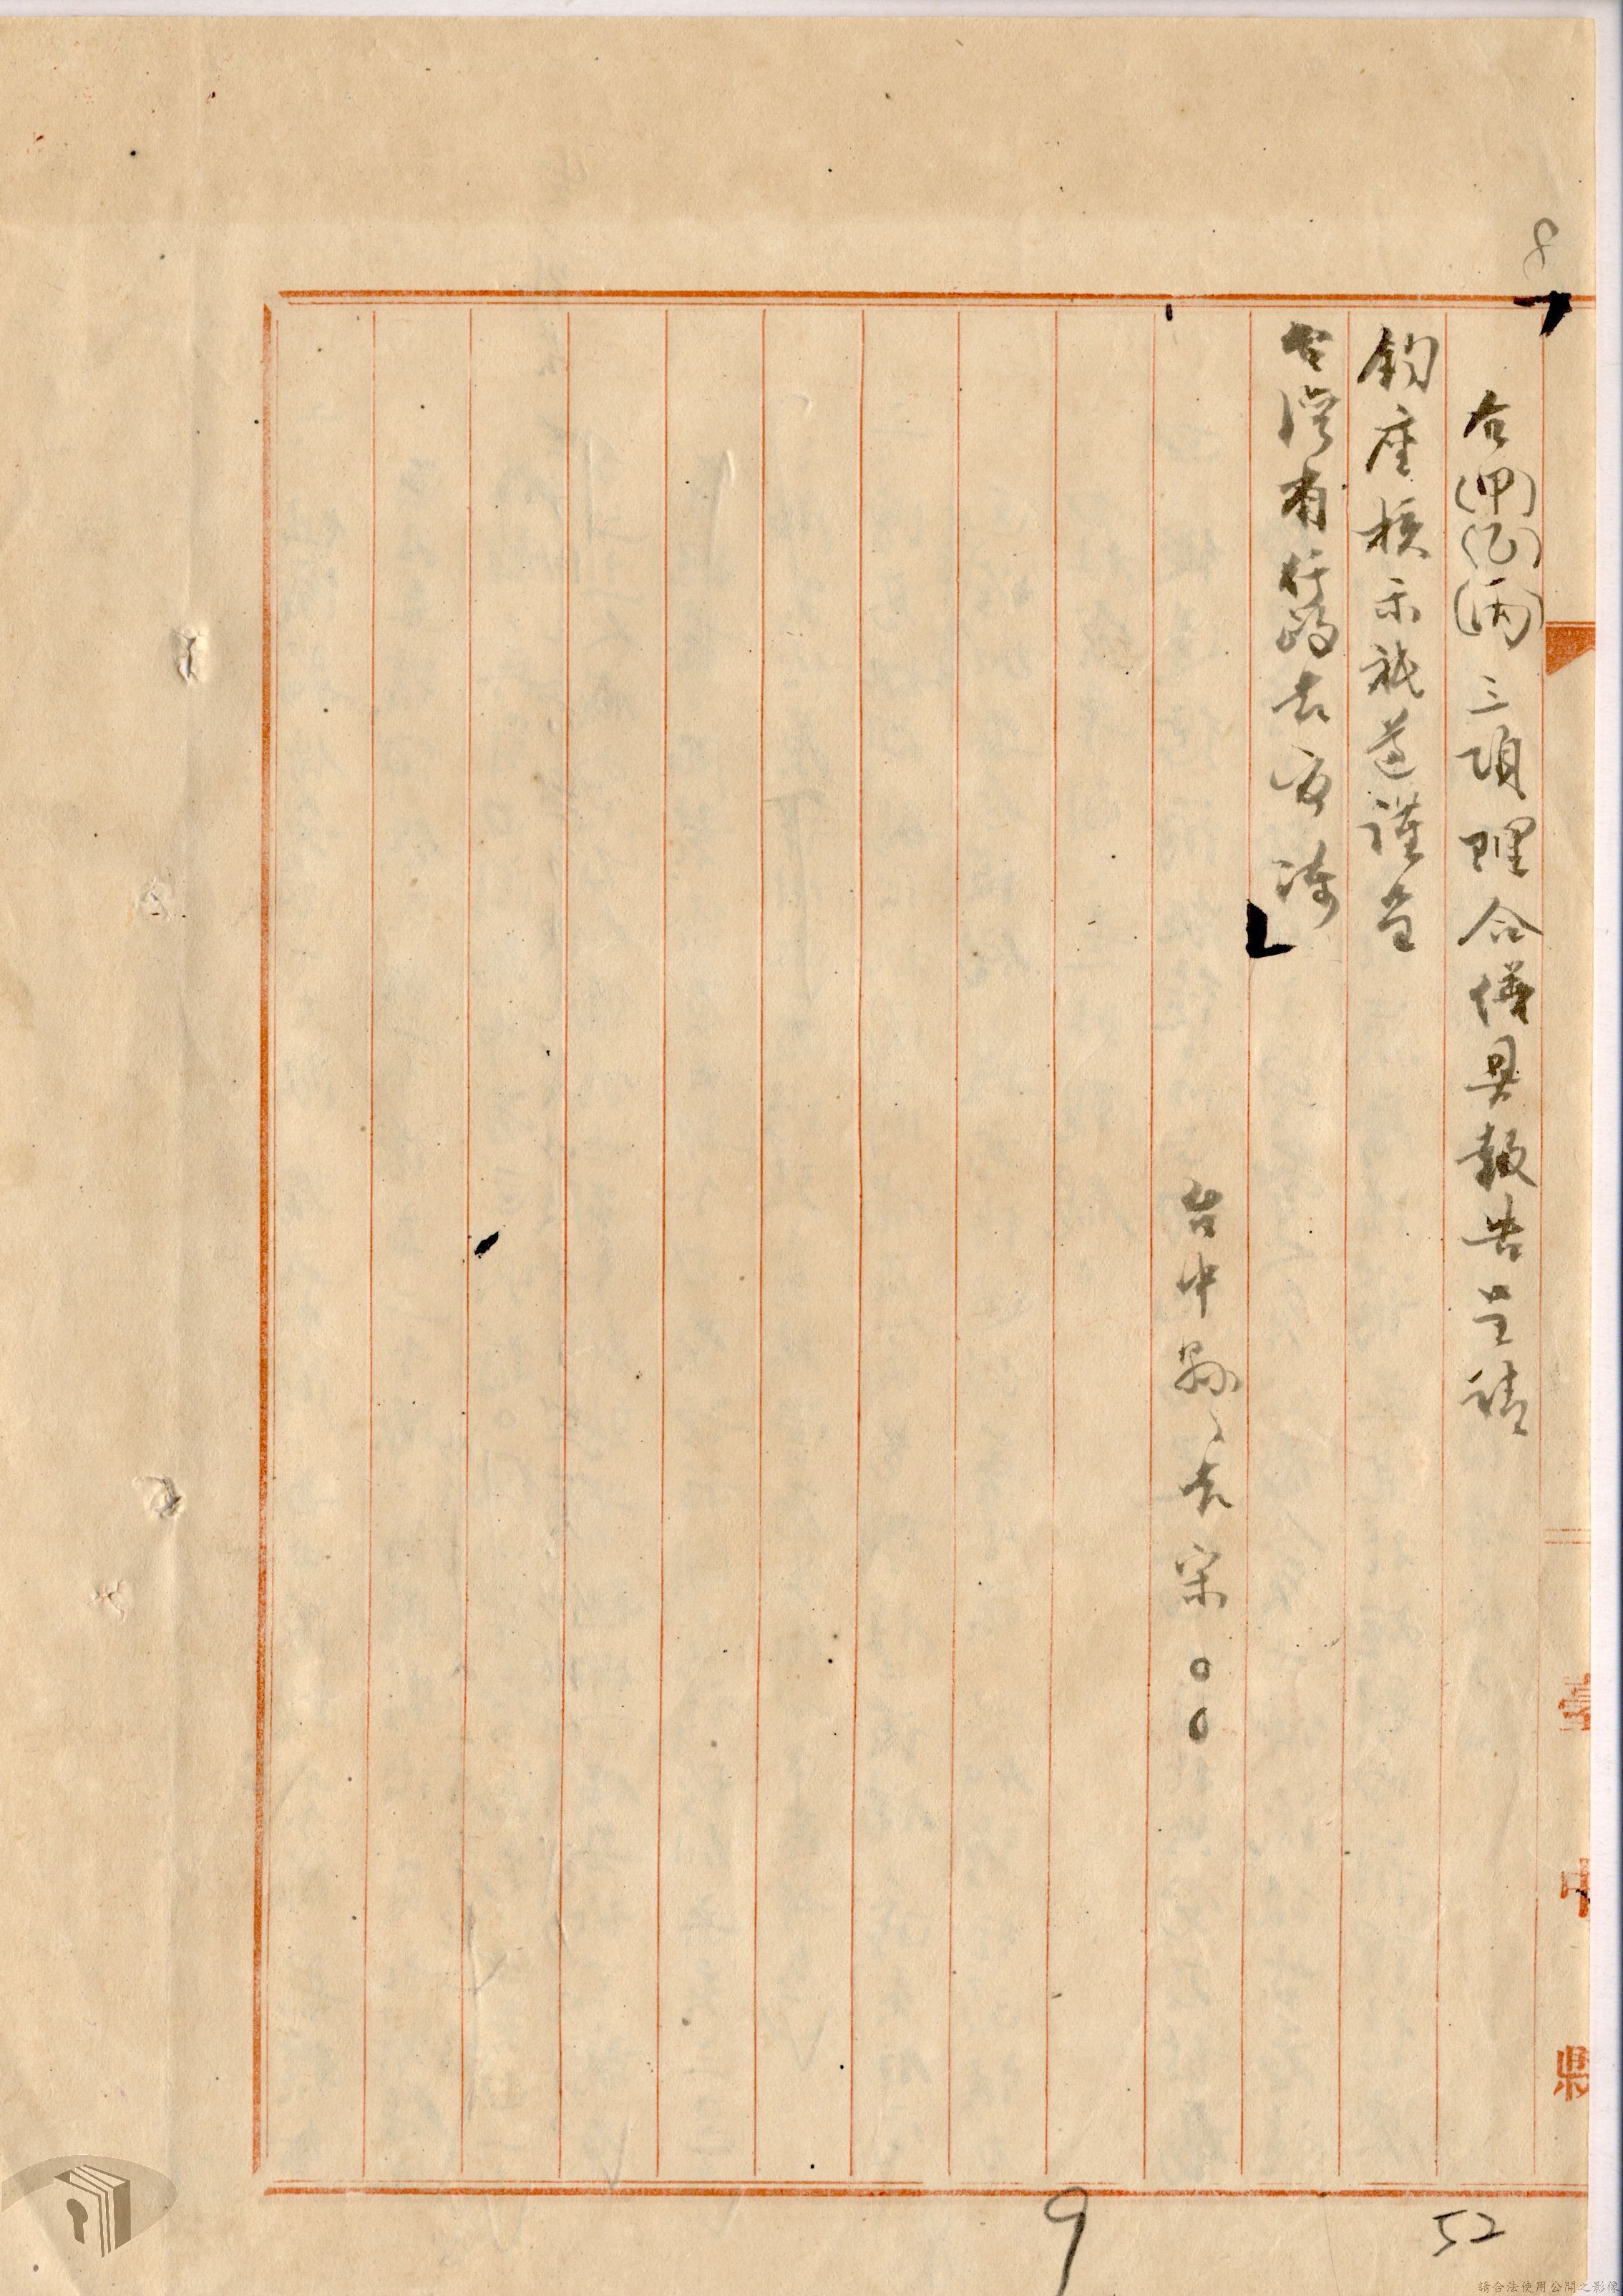 8
右(甲)(乙)(丙)三項理合繕具報告呈請
鈞座核示祇遵謹呈
台湾省行政長官陳
台中縣々長宋○○
臺中県
9
52
請合法使用公開之影像